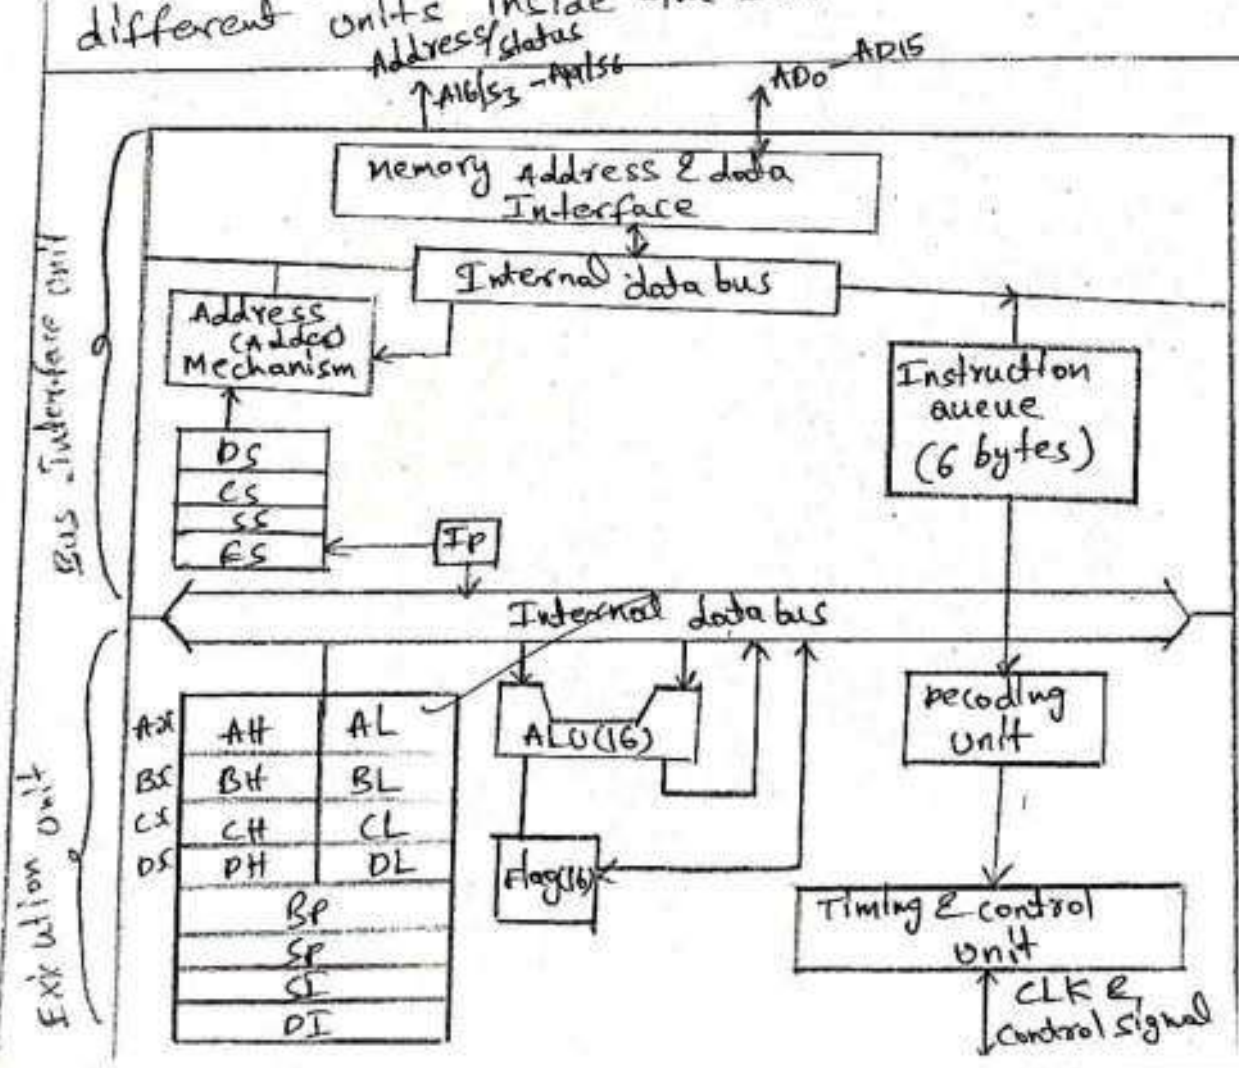 different units inside
Address/status
A16/S3 - A19/S6
AD0 - AD15
Memory Address & data
Interface
Internal data bus
Address
(Adder)
Mechanism
Instruction
queue
(6 bytes)
DS
CS
SS
ES
Ip
Bus Interface unit
Internal data bus
AX AH AL
BX BH BL
CX CH CL
DX DH DL
BP
SP
SI
DI
ALU(16)
Flag(16)
Decoding
Unit
Timing & control
Unit
CLK &
Control signal
Exicution unit